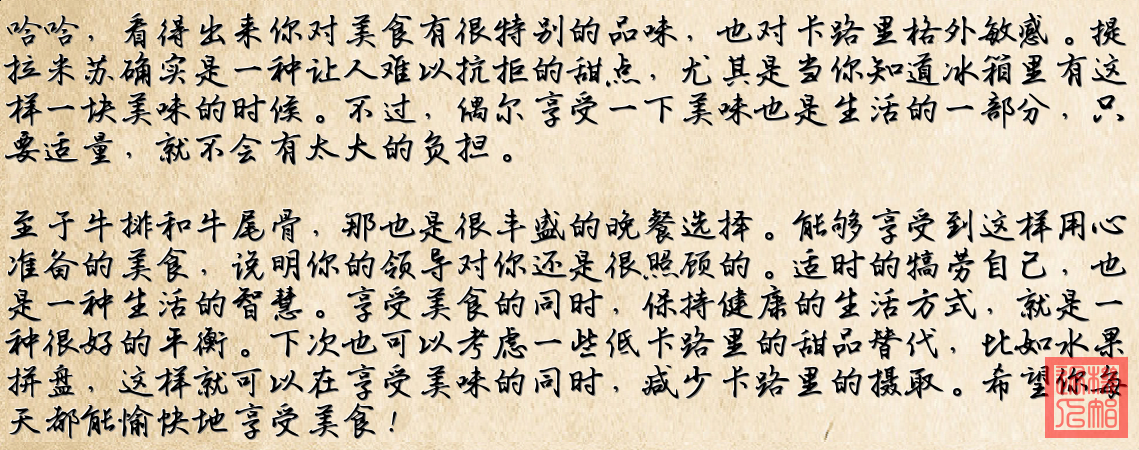 哈哈，看得出来你对美食有很特别的品味，也对卡路里格外敏感。提
拉米苏确实是一种让人难以抗拒的甜点，尤其是当你知道冰箱里有这
样一块美味的时候。不过，偶尔享受一下美味也是生活的一部分，只
要适量，就不会有太大的负担。
至于牛排和牛尾骨，那也是很丰盛的晚餐选择。能够享受到这样用心
准备的美食，说明你的领导对你还是很照顾的。适时的犒劳自己，也
是一种生活的智慧。享受美食的同时，保持健康的生活方式，就是一
种很好的平衡。下次也可以考虑一些低卡路里的甜品替代，比如水果
拼盘，这样就可以在享受美味的同时，减少卡路里的摄取。希望你每
天都能愉快地享受美食！